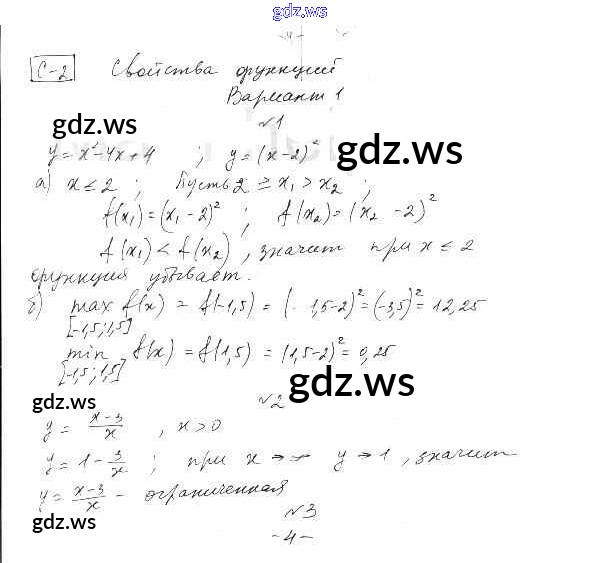 gdz.ws
-4-
С-2 Свойства функций
Вариант 1
№1
gdz.ws
y = x² - 4x + 4 ; y = (x - 2)²
gdz.ws
а) x ≤ 2 ; Пусть 2 ≥ x₁ > x₂ ;
f(x₁) = (x₁ - 2)² ; f(x₂) = (x₂ - 2)²
f(x₁) < f(x₂), значит при x ≤ 2
функция убывает.
б) max f(x) = f(-1,5) = (-1,5-2)² = (-3,5)² = 12,25
[-1,5; 1,5]
min f(x) = f(1,5) = (1,5-2)² = 0,25
[-1,5; 1,5]
gdz.ws
gdz.ws
№2
y = (x-3)/x , x > 0
y = 1 - 3/x ; при x → y → 1, значит
y = (x-3)/x - ограниченная
gdz.ws
gdz.ws
№3
-4-